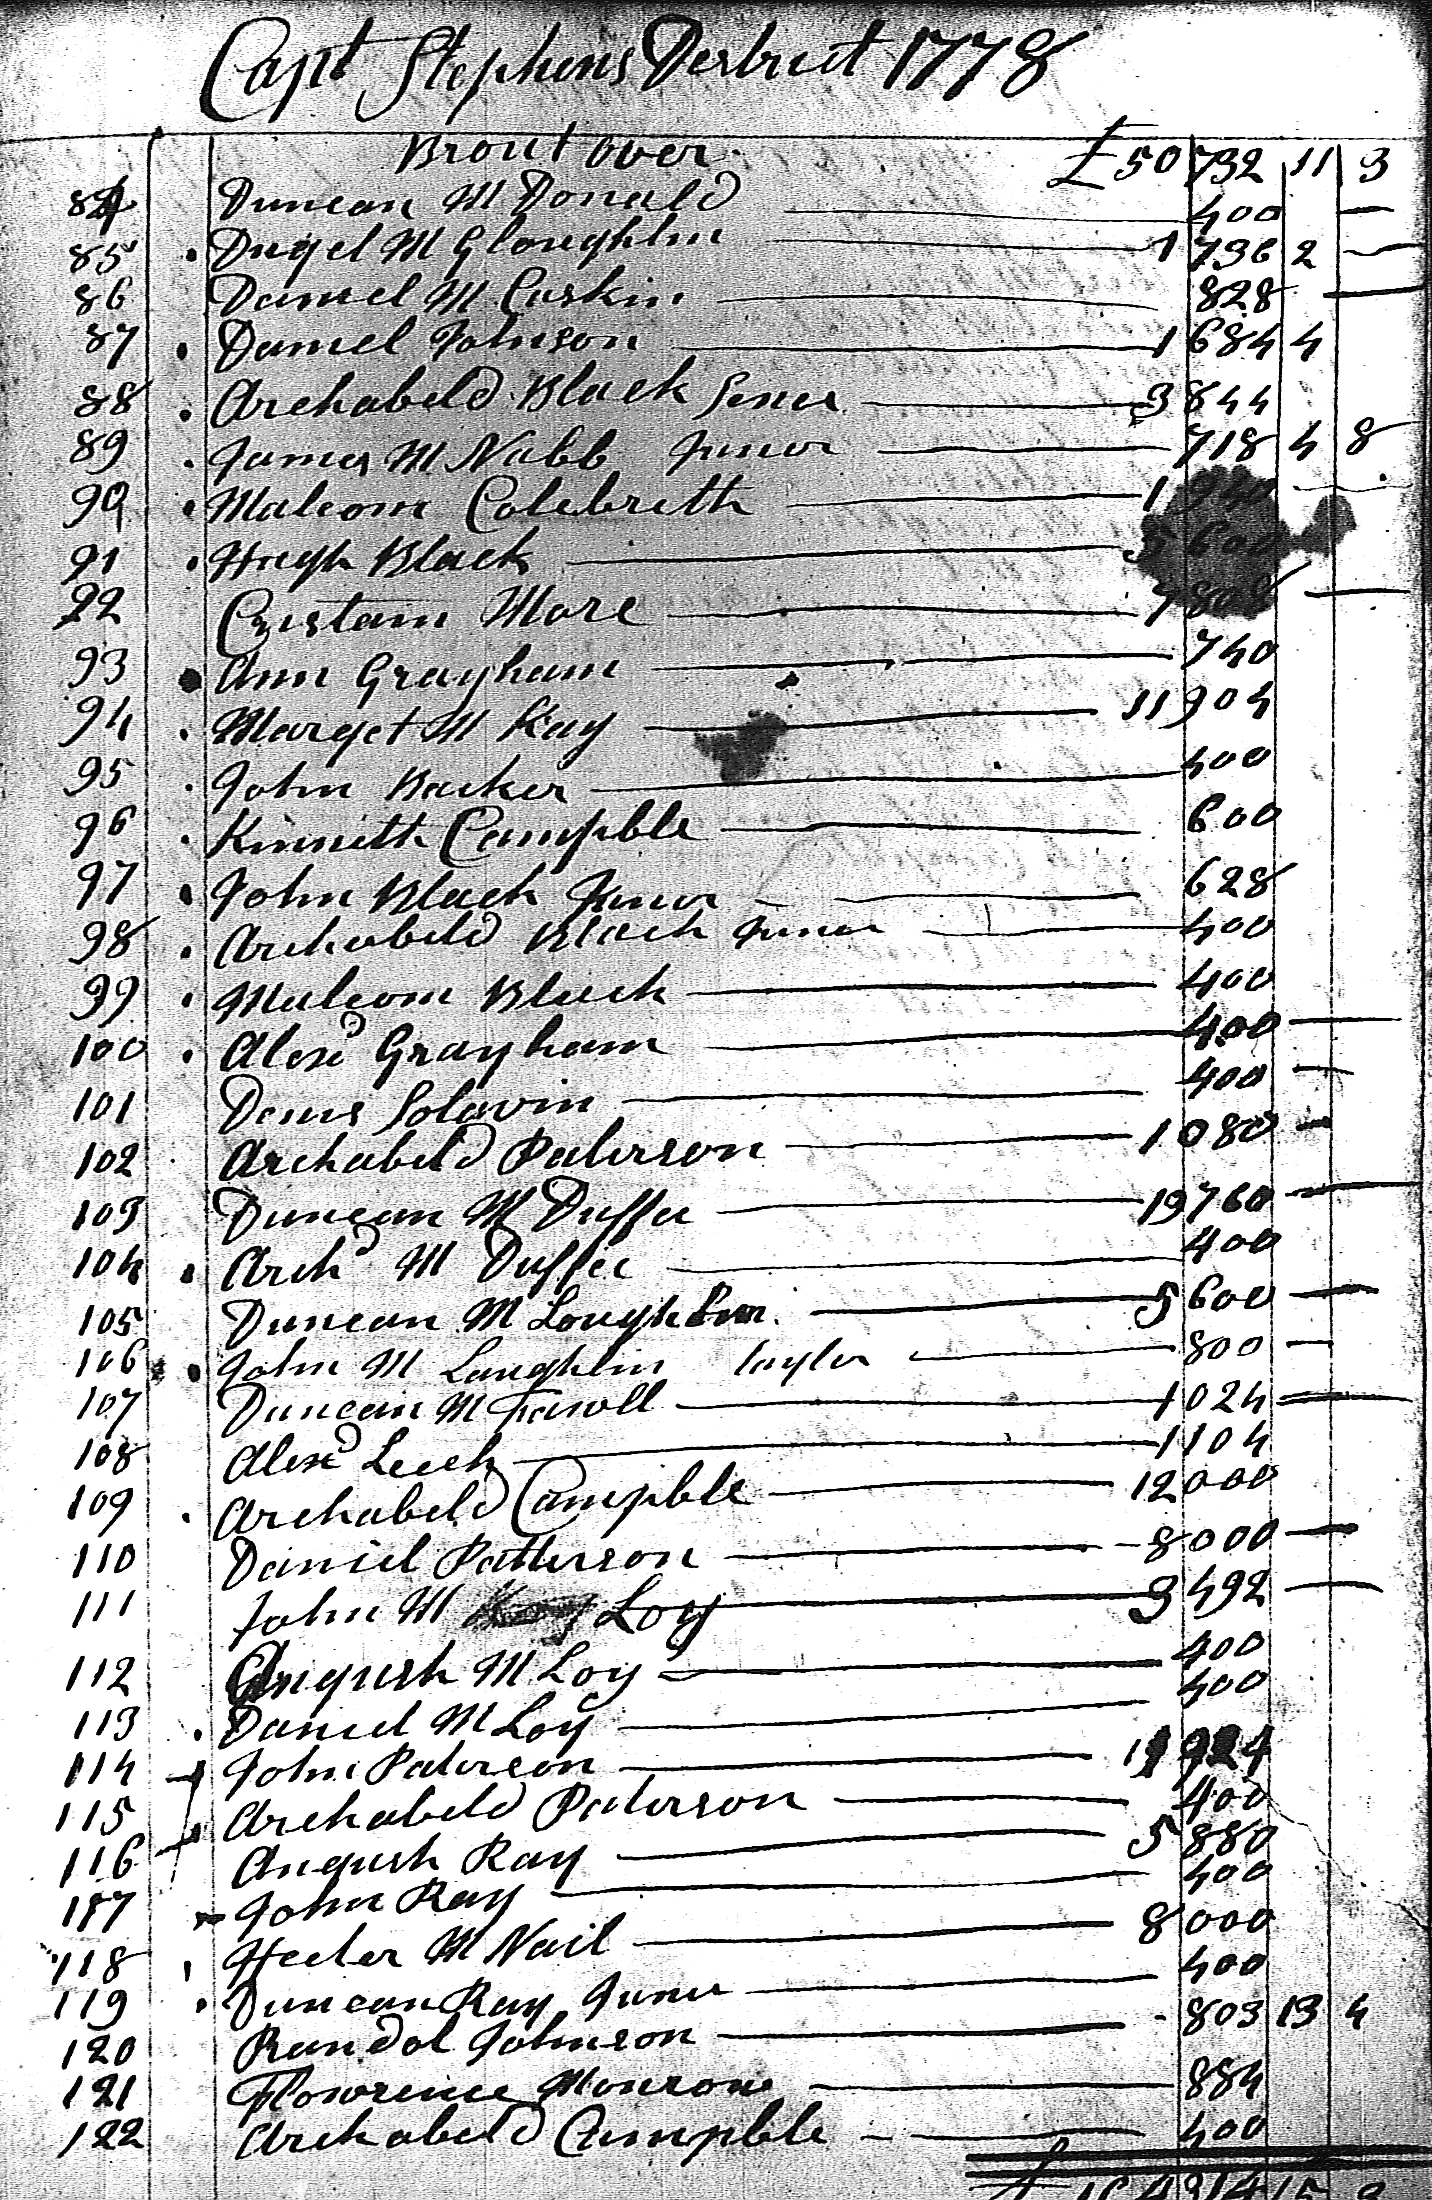 Capt Stephens Destrict 1778
Brout over £50732 11 3
84 Duncan McDonald 400
85 Dugel McGloughlin 1736 2
86 Daniel McCaskin 828
87 Daniel Johnson 1684 4
88 Archabeld Black Sener 3844
89 James McNabb Juner 718 4 8
90 Malcom Colebreth 1940
91 Hugh Black 5600
92 Crustain More 7808
93 Ann Grayham 740
94 Marget McKay 11904
95 John Backer 400
96 Kinnith Campble 600
97 John Black Juner 628
98 Archabeld Black Juner 400
99 Malcom Black 400
100 Alexd Grayham 400
101 Denis Solavin 400
102 Archabeld Paterson 1080
103 Duncan McDuffee 19760
104 Archd McDuffee 400
105 Duncan McLoughlin 5600
106 John McLaughlin Tayler 800
107 Duncan McFaroll 1024
108 Alexd Leech 1104
109 Archabeld Campble 12000
110 Daniel Patterson 8000
111 John Mc Loy 3492
112 Angush McLoy 400
113 Daniel McLoy 400
114 John Paterson
115 Archabeld Paterson 400
116 Angush Ray 5880
117 John Ray 400
118 Hecter McNail 8000
119 Duncan Ray Juner 400
120 Randol Johnson 803 13 4
121 Flowrence Monrow 884
122 Archabeld Campble 400